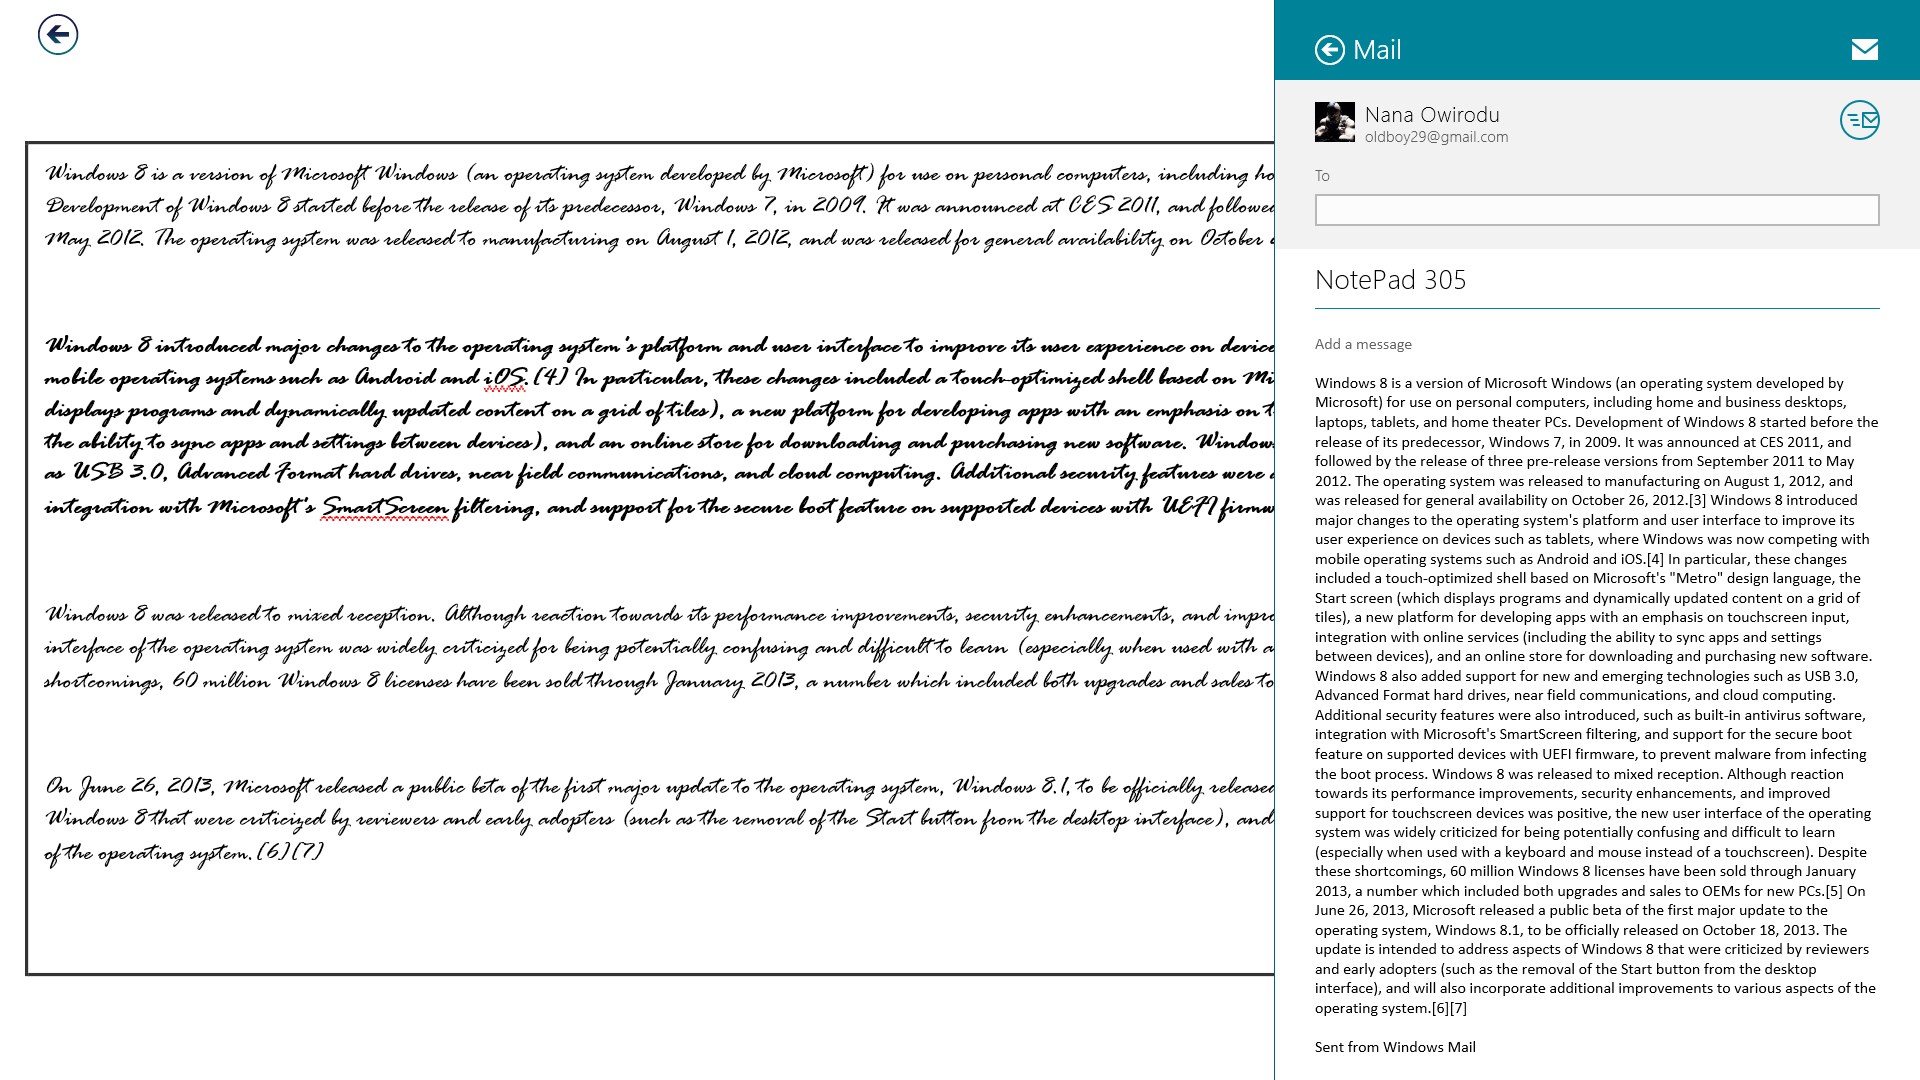 Windows 8 is a version of Microsoft Windows (an operating system developed by Microsoft) for use on personal computers, including ho
Development of Windows 8 started before the release of its predecessor, Windows 7, in 2009. It was announced at CES 2011, and followed
May 2012. The operating system was released to manufacturing on August 1, 2012, and was released for general availability on October
Windows 8 introduced major changes to the operating system's platform and user interface to improve its user experience on device
mobile operating systems such as Android and iOS.[4] In particular, these changes included a touch-optimized shell based on Mi
displays programs and dynamically updated content on a grid of tiles), a new platform for developing apps with an emphasis on t
the ability to sync apps and settings between devices), and an online store for downloading and purchasing new software. Window
as USB 3.0, Advanced Format hard drives, near field communications, and cloud computing. Additional security features were a
integration with Microsoft's SmartScreen filtering, and support for the secure boot feature on supported devices with UEFI firmw
Windows 8 was released to mixed reception. Although reaction towards its performance improvements, security enhancements, and impro
interface of the operating system was widely criticized for being potentially confusing and difficult to learn (especially when used with a
shortcomings, 60 million Windows 8 licenses have been sold through January 2013, a number which included both upgrades and sales to
On June 26, 2013, Microsoft released a public beta of the first major update to the operating system, Windows 8.1, to be officially released
Windows 8 that were criticized by reviewers and early adopters (such as the removal of the Start button from the desktop interface), and
of the operating system.[6][7]
Mail
Nana Owirodu
oldboy29@gmail.com
To
NotePad 305
Add a message
Windows 8 is a version of Microsoft Windows (an operating system developed by
Microsoft) for use on personal computers, including home and business desktops,
laptops, tablets, and home theater PCs. Development of Windows 8 started before the
release of its predecessor, Windows 7, in 2009. It was announced at CES 2011, and
followed by the release of three pre-release versions from September 2011 to May
2012. The operating system was released to manufacturing on August 1, 2012, and
was released for general availability on October 26, 2012.[3] Windows 8 introduced
major changes to the operating system's platform and user interface to improve its
user experience on devices such as tablets, where Windows was now competing with
mobile operating systems such as Android and iOS.[4] In particular, these changes
included a touch-optimized shell based on Microsoft's "Metro" design language, the
Start screen (which displays programs and dynamically updated content on a grid of
tiles), a new platform for developing apps with an emphasis on touchscreen input,
integration with online services (including the ability to sync apps and settings
between devices), and an online store for downloading and purchasing new software.
Windows 8 also added support for new and emerging technologies such as USB 3.0,
Advanced Format hard drives, near field communications, and cloud computing.
Additional security features were also introduced, such as built-in antivirus software,
integration with Microsoft's SmartScreen filtering, and support for the secure boot
feature on supported devices with UEFI firmware, to prevent malware from infecting
the boot process. Windows 8 was released to mixed reception. Although reaction
towards its performance improvements, security enhancements, and improved
support for touchscreen devices was positive, the new user interface of the operating
system was widely criticized for being potentially confusing and difficult to learn
(especially when used with a keyboard and mouse instead of a touchscreen). Despite
these shortcomings, 60 million Windows 8 licenses have been sold through January
2013, a number which included both upgrades and sales to OEMs for new PCs.[5] On
June 26, 2013, Microsoft released a public beta of the first major update to the
operating system, Windows 8.1, to be officially released on October 18, 2013. The
update is intended to address aspects of Windows 8 that were criticized by reviewers
and early adopters (such as the removal of the Start button from the desktop
interface), and will also incorporate additional improvements to various aspects of the
operating system.[6][7]
Sent from Windows Mail